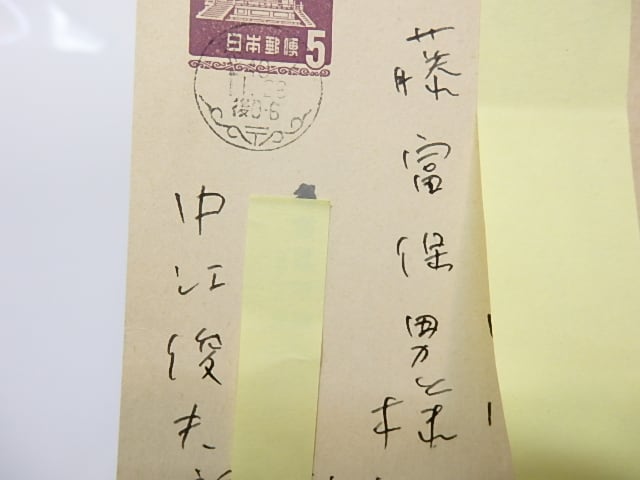 日本郵便 5
11.23
後0-6
藤富保男様
中江俊夫